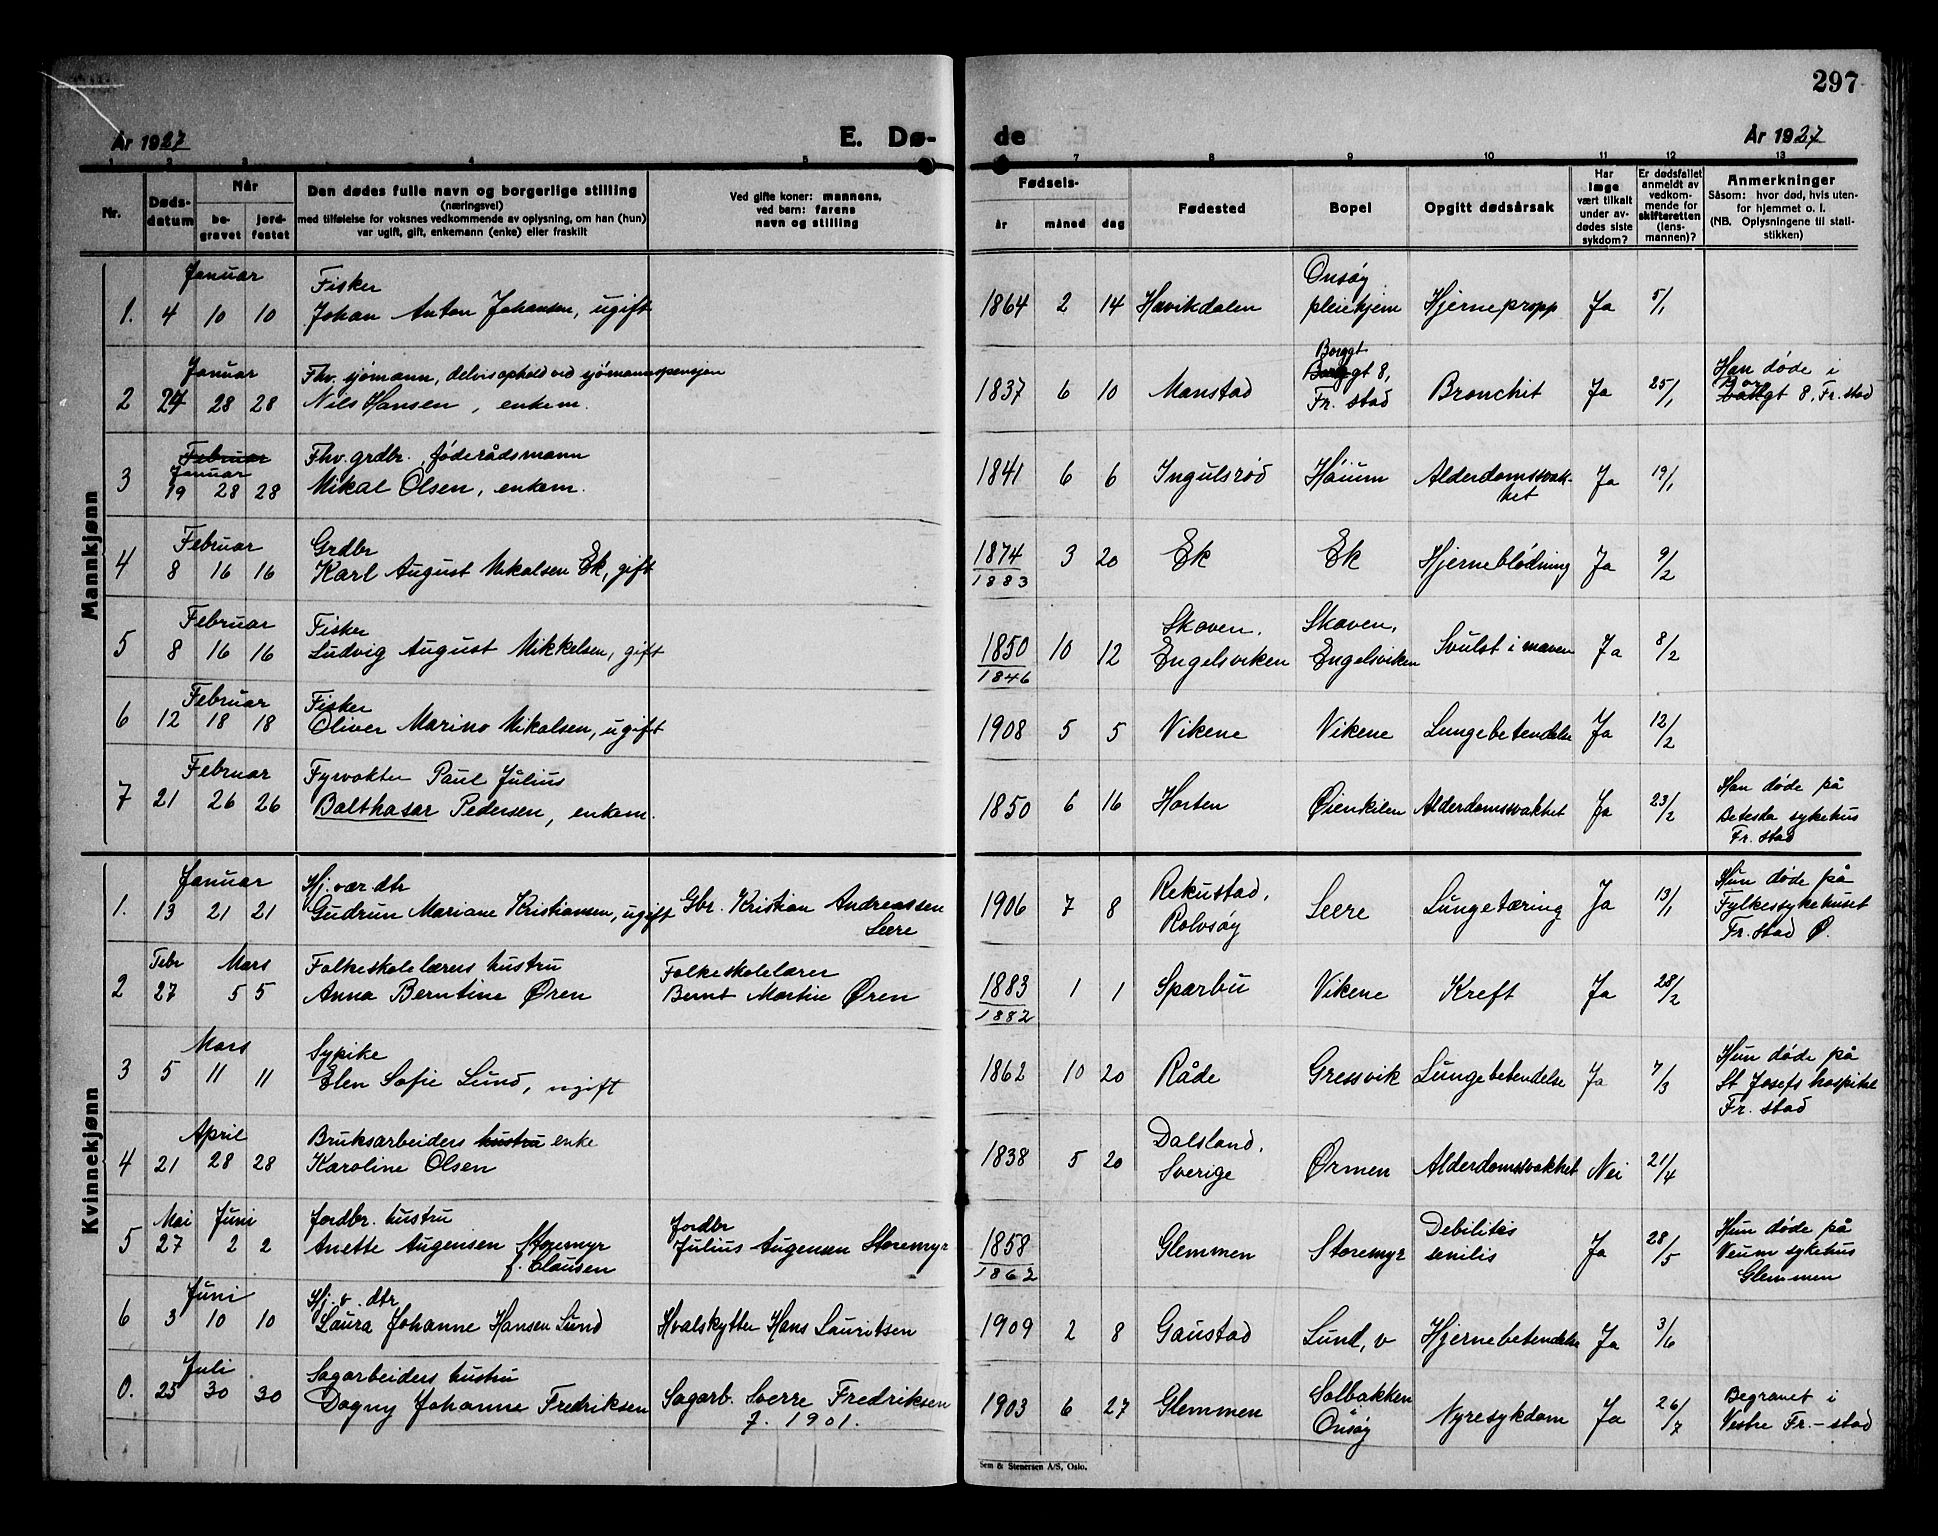 297
År 1927 E. Dø- de År 1927
1 2 3 4 5 7 8 9 10 11 12 13
Nr.
Døds-
datum
Når
be-
gravet
jord-
festet
Den dødes fulle navn og borgerlige stilling
(næringsvei)
med tilføielse for voksnes vedkommende av oplysning, om han (hun)
var ugift, gift, enkemann (enke) eller fraskilt
Ved gifte koner: mannens,
ved barn: farens
navn og stilling
Fødsels-
år måned dag
Fødested
Bopel
Opgitt dødsårsak
Har
læge
vært tilkalt
under av-
dødes siste
sykdom?
Er dødsfallet
anmeldt av
vedkom-
mende for
skifteretten
(lens-
mannen)?
Anmerkninger
Såsom: hvor død, hvis uten-
for hjemmet o. l.
(NB. Oplysningene til stati-
stikken)
Mannkjønn
Januar Fisker Onsøy
1. 4 10 10 Johan Anton Johansen, ugift 1864 2 14 Hævikdalen pleiehjem Hjernepropp Ja 5/1
Januar Fhv. sjømann, delvis ophold ved sjømannspensjon Borggt Han døde i
2 24 28 28 Nils Hansen, enkem. 1837 6 10 Manstad gt 8, Fr. stad Bronchit Ja 25/1 gt 8, Fr. stad
Februar Fhv. grdbr., føderådsmann
Januar
3 19 28 28 Mikal Olsen, enkem. 1841 6 6 Ingulsrød Høium Alderdomssvak-
het Ja 19/1
Februar Grdbr
4 8 16 16 Karl August Mikalsen Ek, gift 1874 3 20 Ek Ek Hjerneblødning Ja 9/2
1883
Februar Fisker Skaven, Skaven,
5 8 16 16 Ludvig August Mikkelsen, gift 1850 10 12 Engelsviken Engelsviken Svulst i maven Ja 8/2
1846
Februar Fisker
6 12 18 18 Oliver Marino Mikalsen, ugift 1908 5 5 Vikene Vikene Lungebetendelse Ja 12/2
Februar Fyrvokter Paul Julius Han døde på
7 21 26 26 Balthasar Pedersen, enkem. 1850 6 16 Horten Øienkilen Alderdomssvakhet Ja 23/2 Betesda sykehus
Fr. stad
Kvinnekjønn
Januar Hj. vær. dtr Rekustad, Hun døde på
1. 13 21 21 Gudrun Mariane Kristiansen, ugift Gbr. Kristian Andreassen 1906 7 8 Rolvsøy Leere Lungetæring Ja 13/1 Fylkessykehuset
Leere Fr. stad Ø.
Febr Mars Folkeskolelærers hustru Folkeskolelærer
2 27 5 5 Anna Berntine Øren Bernt Martin Øren 1883 1 1 Sparbu Vikene Kreft Ja 28/2
1882
Mars Sypike Hun døde på
3 5 11 11 Elen Sofie Lund, ugift 1862 10 20 Råde Gressvik Lungebetendelse Ja 7/3 St Josefs hospital
Fr. stad
April Bruksarbeiders hustru enke Dalsland,
4 21 28 28 Karoline Olsen 1838 5 20 Sverige Ørmen Alderdomssvakhet Nei 21/4
Mai Juni Jordbr. hustru Jordbr Debilitis Hun døde på
5 27 2 2 Anette Augensen Storemyr Julius Augensen Storemyr 1858 Glemmen Storemyr senilis Ja 28/5 Veum sykehus
f. Clausen 1862 Glemmen
Juni Hj. v. dtr
6 3 10 10 Laura Johanne Hansen Lund Hvalskytter Hans Lauritsen 1909 2 8 Gaustad Lund, v Hjernebetendelse Ja 3/6
Juli Sagarbeiders hustru Solbakken Begravet i
0. 25 30 30 Dagny Johanne Fredriksen Sagarb. Sverre Fredriksen 1903 6 27 Glemmen Onsøy Nyresykdom Ja 26/7 Vestre Fr.-stad
f. 1901.
Sem & Stenersen A/S, Oslo.